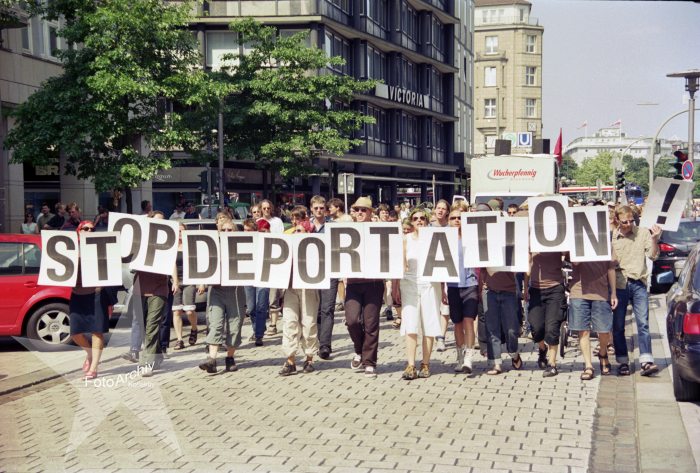 VICTORIA
U
Wucherpfennig
STOP DEPORTATION!
FotoArchiv